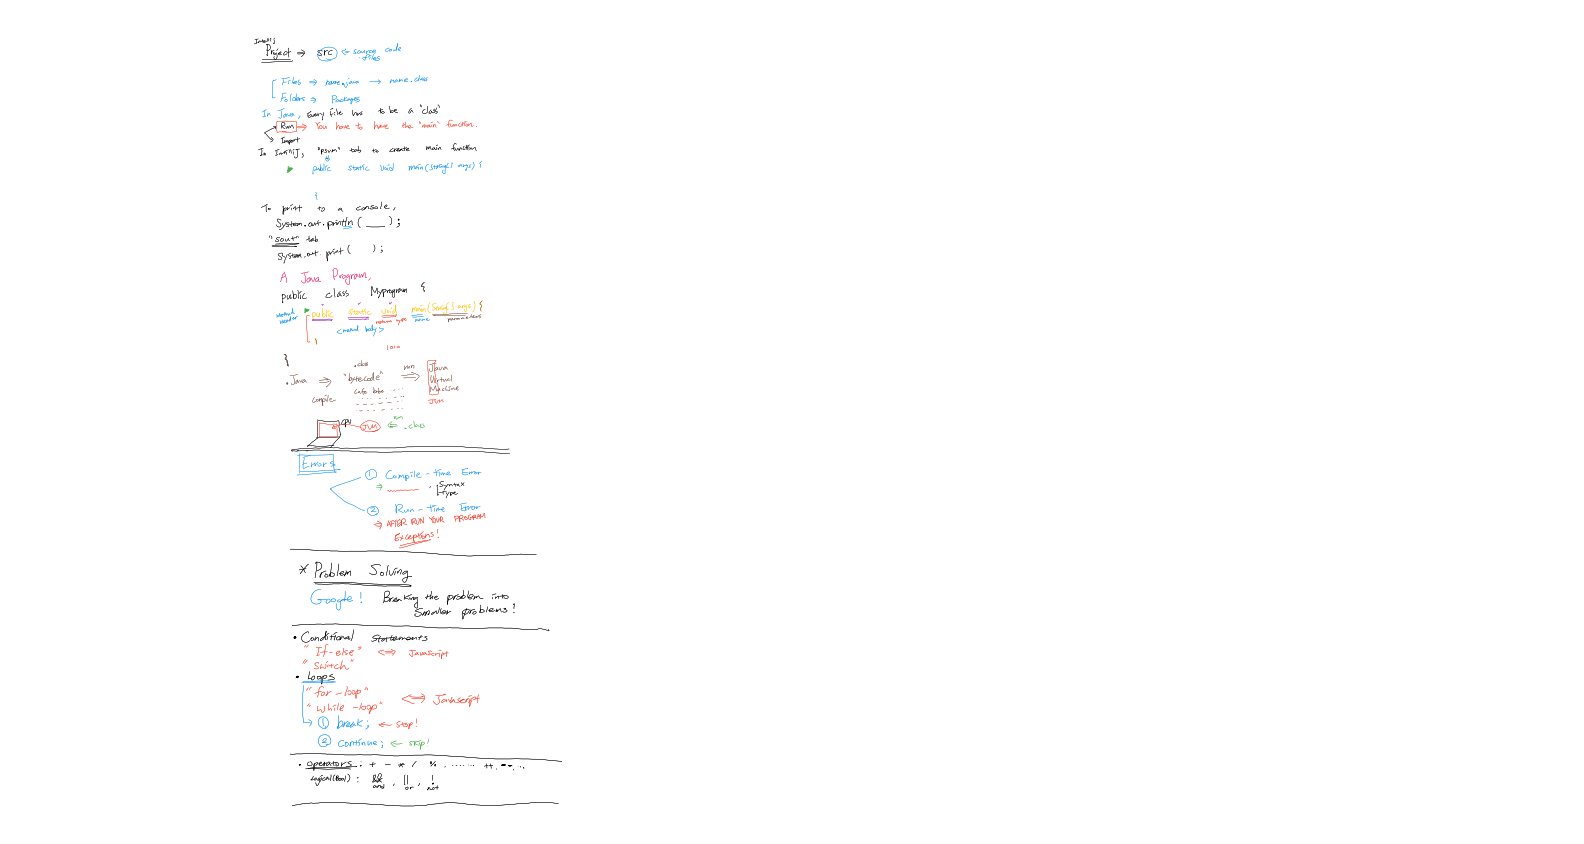 Intellij
Project ⇒ src ⇐ source code files
Files ⇒ name.java → name.class
Folders ⇒ Packages
In Java, Every file has to be a "class"
Run ⇒ You have to have the "main" function.
Import
In IntelliJ, "psvm" tab to create main function
public static void main(String[] args) {
}
To print to a console,
System.out.println ( ___ ) ;
"sout" tab
System.out.print ( ) ;
A Java Program,
public class Myprogram {
method header public static void main(String[] args) {
return type name parameters
<method body>
}
1010
}
.class
.Java ⇒ "bytecode" run ⇒ Java Virtual Machine
compile cafe babe JVM
CPU JVM ⇐ run .class
Errors
① Compile - time Error
⇒ Syntax
Type
② Run - time Error
⇒ AFTER RUN YOUR PROGRAM
Exceptions!
* Problem Solving
Google! Breaking the problem into
Smaller problems!
• Conditional Statements
"If-else" ⇔ Javascript
"Switch"
• Loops
"for-loop"
"while-loop" ⇔ Javascript
① break; ⇐ stop!
② Continue; ⇐ skip!
• Operators : + - * / % ....... ++, --, ..
Logical(Bool) : && , || , !
and or not